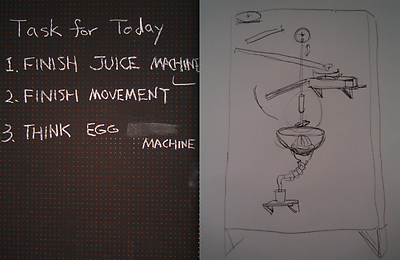 Task for Today
1. FINISH JUICE MACHINE
2. FINISH MOVEMENT
3. THINK EGG
MACHINE